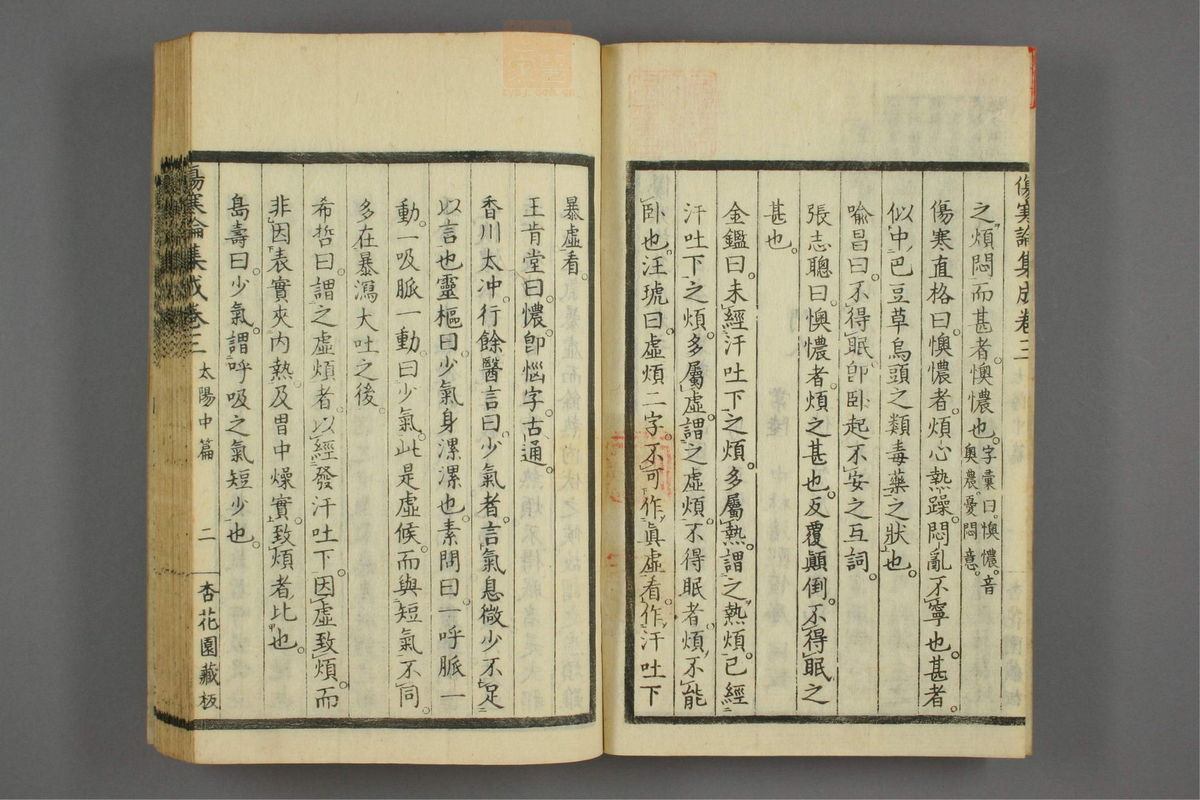 傷寒論集成卷三
之煩悶而甚者。懊憹也。字彙曰。懊憹。音
奥農。憂悶意。
傷寒直格曰。懊憹者。煩心熱躁。悶亂不寧也。甚者。
似中巴豆草烏頭之類毒藥之狀也。
喩昌曰。不得眠。卽臥起不安之互詞。
張志聰曰。懊憹者。煩之甚也。反覆顚倒。不得眠之
甚也。
金鑑曰。未經汗吐下之煩。多屬熱。謂之熱煩。已經
汗吐下之煩。多屬虛。謂之虛煩。不得眠者。煩不能
臥也。汪琥曰。虛煩二字。不可作眞虛看。作汗吐下
暴虛看。
王肯堂曰。憹。卽惱字。古通。
香川太冲。行餘醫言曰。少氣者。言氣息微少不足
以言也。靈樞曰。少氣身漯漯也。素問曰。一呼脈一
動。一吸脈一動。曰少氣。此是虛候。而與短氣不同。
多在暴瀉大吐之後。
希哲曰。謂之虛煩者。以經發汗吐下。因虛致煩。而
非因表實夾內熱。及胃中燥實。致煩者比也。
島壽曰。少氣。謂呼吸之氣短少也。
傷寒論集成卷三 太陽中篇 二 杏花園藏板